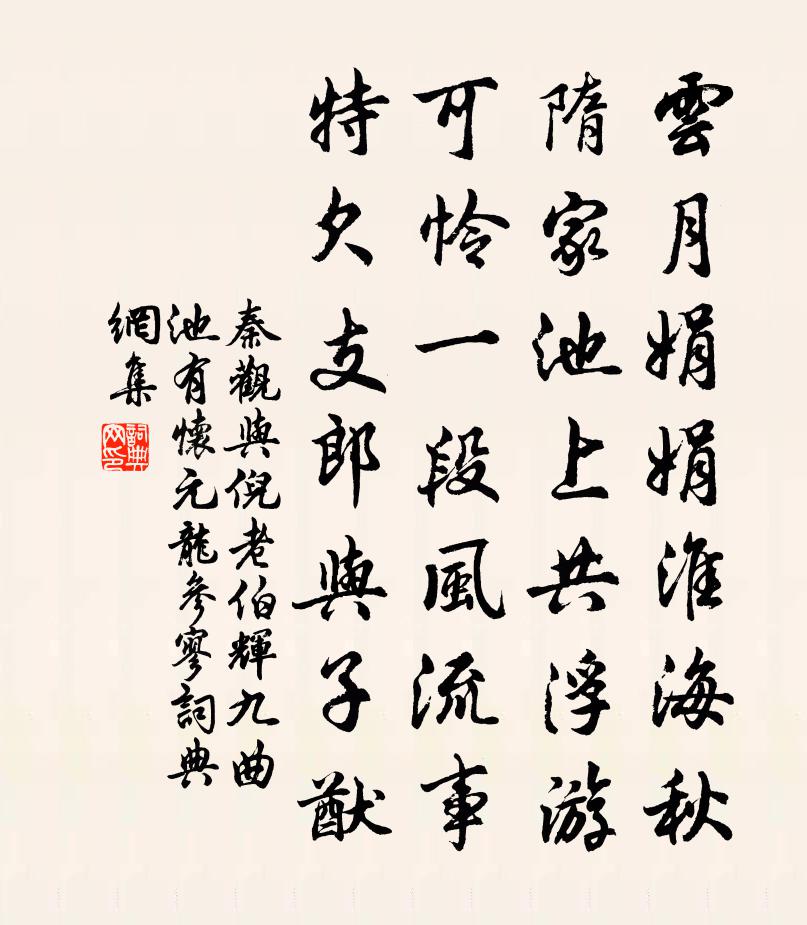 雲月娟娟淮海秋
隋家池上共浮游
可憐一段風流事
特欠支郎與子猷
秦觀與倪老伯輝九曲
池有懷元龍參寥詞典
網集
詞典
网印